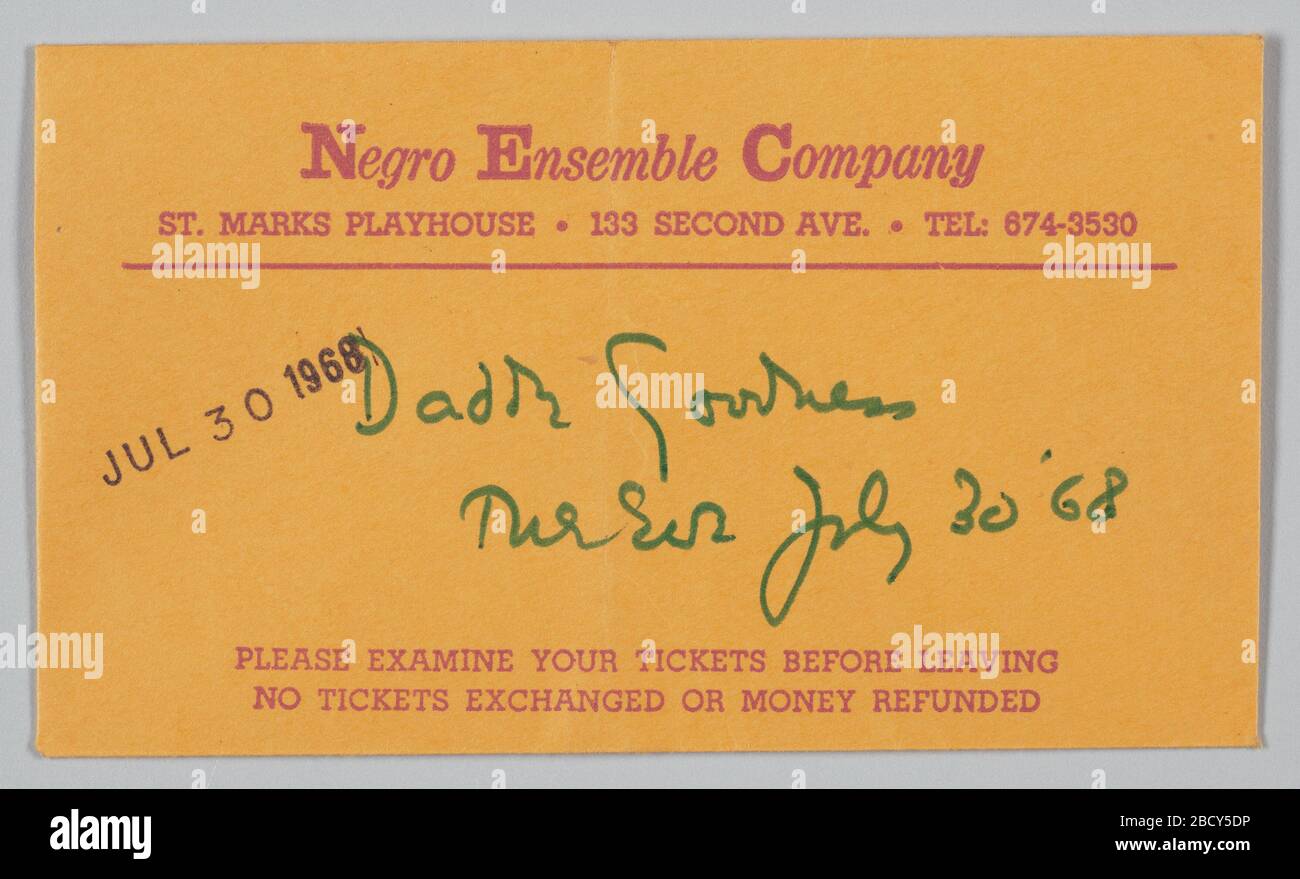 Negro Ensemble Company
ST. MARKS PLAYHOUSE • 133 SECOND AVE. • TEL: 674-3530
JUL 30 1968
Daddy Goodness
Tue Eve July 30 '68
PLEASE EXAMINE YOUR TICKETS BEFORE LEAVING
NO TICKETS EXCHANGED OR MONEY REFUNDED
alamy
Image ID: 2BCY5DP
www.alamy.com